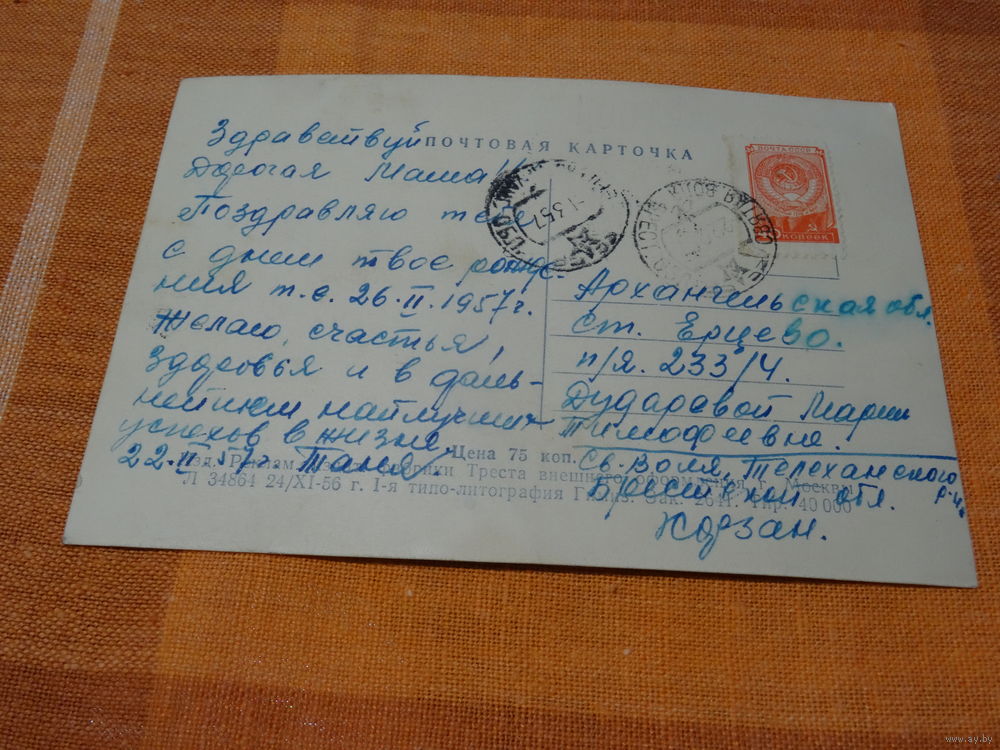 ПОЧТОВАЯ КАРТОЧКА
Здравствуй
Дорогая Маша!
Поздравляю тебе
с днем твое рожде-
ния т.е. 26.II.1957г.
Желаю, счастья,
Здоровья и в даль-
нейшем наилучших
успехов в жизне.
22.II.57г. Таня.
ПОЧТА СССР
КОПЕЕК
Архангельская обл.
Ст. Ерцево.
п/я. 233/4.
Дударевой Марии
Тимофеевне.
Св. Воля, Телеханского
р-на
Брестской обл.
Корзан.
Цена 75 коп.
Изд. Реклам. фабрики Треста внешнего оформления, г. Москвы
Л 34864 24/XI-56 г. 1-я типо-литография Зак. 2641. Тир. 40 000
www.ay.by